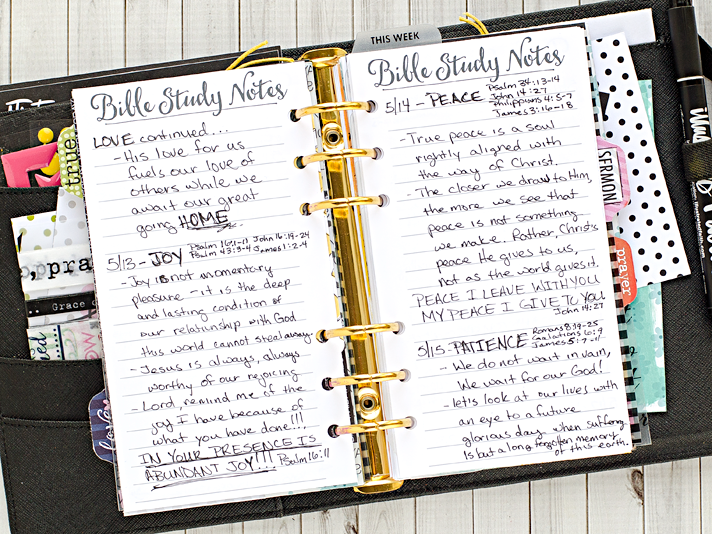 THIS WEEK
Bible Study Notes
LOVE continued...
- His love for us
fuels our love of
others while we
await our great
going HOME.
5/13 - JOY
Psalm 16:1-11 John 16:19-24
Psalm 43:3-4 James 1:2-4
- Joy is not momentary
pleasure - it is the deep
and lasting condition of
our relationship with God
this world cannot steal away.
- Jesus is always, always
worthy of our rejoicing
- Lord, remind me of the
joy I have because of
what you have done!!!
IN YOUR PRESENCE IS
ABUNDANT JOY!!! Psalm 16:11
Bible Study Notes
5/14 - PEACE
Psalm 34:13-14
John 14:27
Philippians 4:5-7
James 3:16-18
- True peace is a soul
rightly aligned with
the way of Christ.
- The closer we draw to Him,
the more we see that
peace is not something
we make. Rather, Christ's
peace He gives to us,
not as the world gives it.
PEACE I LEAVE WITH YOU
MY PEACE I GIVE TO YOU
John 14:27
5/15 - PATIENCE
Romans 8:19-25
Galations 6:9
James 5:7-11
- We do not wait in vain,
We wait for our God!
- let's look at our lives with
an eye to a future
glorious day when suffering
is but a long forgotten memory
of this earth.
SERMON
prayer
true
Grace